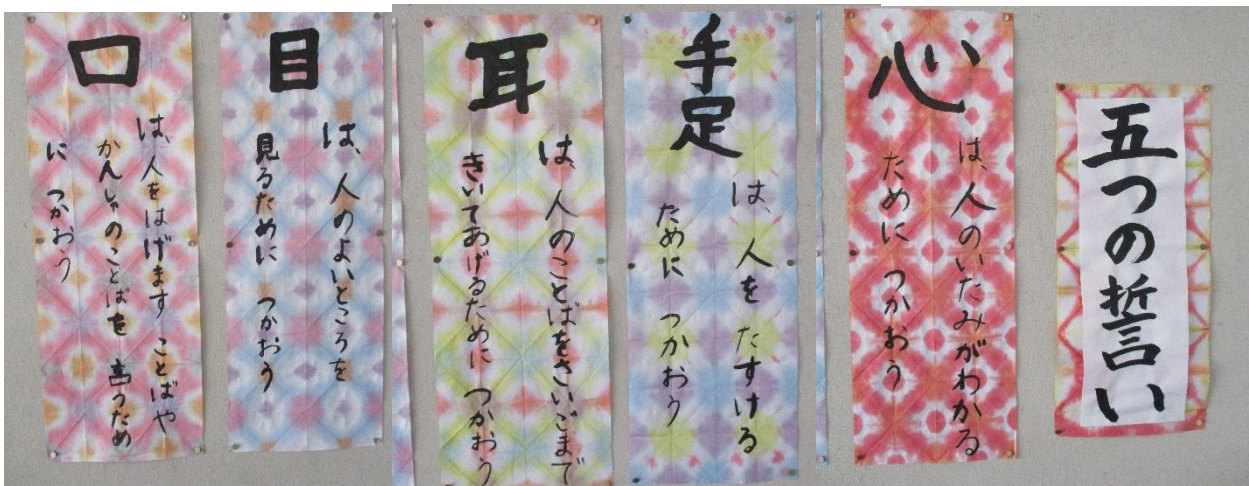 五つの誓い
心
は、人のいたみがわかる
ために つかおう
手足
は、人を たすける
ために つかおう
耳
は、人のことばをさいごまで
きいてあげるために つかおう
目
は、人のよいところを
見るために つかおう
口
は、人をはげます ことばや
かんしゃのことばを 言うため
に つかおう